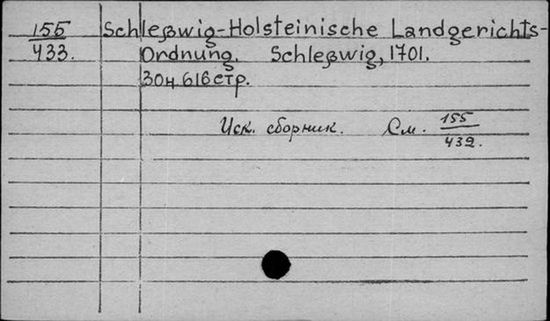 155 Schleßwig-Holsteinische Landgerichts-
433. Ordnung. Schleßwig, 1701.
30н. 616 стр.
Иск. сборник. См. 155
432.